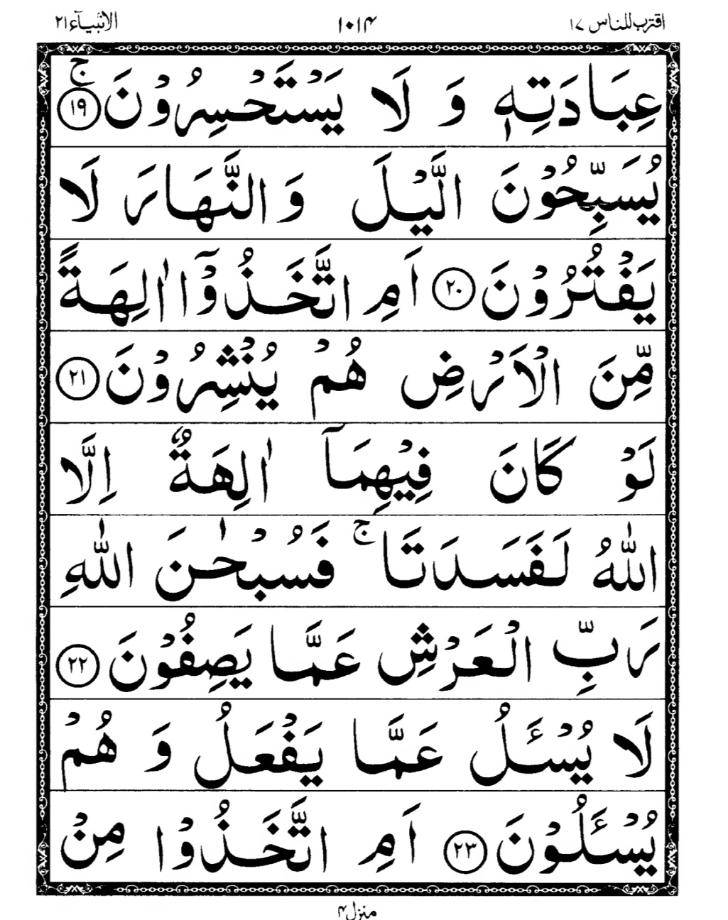 اقترب للناس ۱۷ ۱۰۱۴ الانبیآء ۲۱
عِبَادَتِهٖ وَ لَا يَسْتَحْسِرُوْنَ ۚ ﴿۱۹﴾
يُسَبِّحُوْنَ الَّيْلَ وَالنَّهَارَ لَا
يَفْتُرُوْنَ ﴿۲۰﴾ اَمِ اتَّخَذُوْۤا اٰلِهَةً
مِّنَ الْاَرْضِ هُمْ يُنْشِرُوْنَ ﴿۲۱﴾
لَوْ كَانَ فِيْهِمَاۤ اٰلِهَةٌ اِلَّا
اللّٰهُ لَفَسَدَتَا ۚ فَسُبْحٰنَ اللّٰهِ
رَبِّ الْعَرْشِ عَمَّا يَصِفُوْنَ ﴿۲۲﴾
لَا يُسْـَٔلُ عَمَّا يَفْعَلُ وَ هُمْ
يُسْـَٔلُوْنَ ﴿۲۳﴾ اَمِ اتَّخَذُوْا مِنْ
منزل ۴